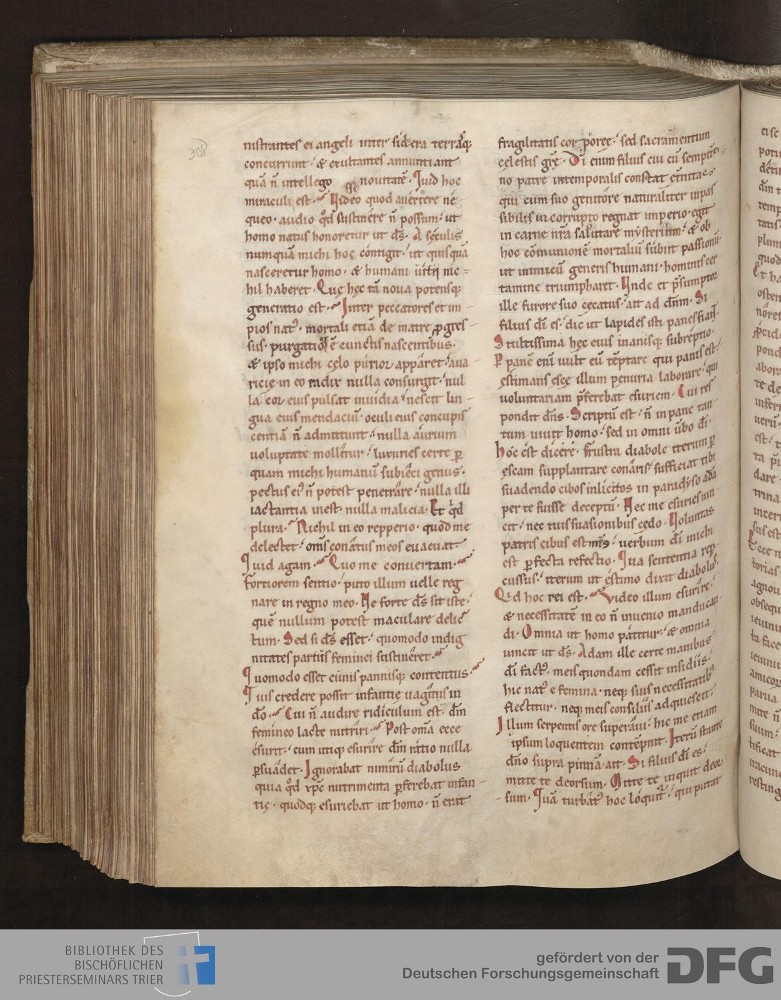 308
nistrantes ei angeli inter sidera terrāq;
concurrunt · & exultantes annuntiant
quā ñ intellego nouitatē · Quid hoc
miraculi est · Video quod auertere ne
queo · audio qd̄ sustinere ñ possum · ut
homo natus honoretur ut d̄s · A seculis
numquā michi hoc contigit · ut quisquā
nasceretur homo · & humani uitii nic-
hil haberet · Quę hęc tā noua potensq;
generatio est · Inter peccatores et im-
pios nat᾽ · mortali etiā de matre ꝓgres-
sus · purgatior ē cunctis nascentibus ·
& ipso michi celo purior apparet · aua
ricie in eo radix nulla consurgit · nul
la cor eius pulsat inuidia · nescit lin-
gua eius mendaciū · oculi eius concupis
centiā ñ admittunt · nulla aurium
uoluptate mollitur · luxuries certe ꝑ
quam michi humanū subieci genus ·
pectus ei᾽ ñ potest penetrare · nulla illi
iactantia inest · nulla malicia · Et qd̄
plura · Nichil in eo repperio · quod me
delectet · om̄s conatus meos euacuat ·
Quid agam · Quo me conuertam ·
Fortiorem sentio · puto illum uelle reg
nare in regno meo · Ne forte d̄s sit iste ·
quē nullum potest maculare delic
tum · Sed si d̄s esset · quomodo indig
nitates partus feminei sustineret ·
Quomodo esset cunis pannisq; contentus ·
Quis credere possit infantię uagitus in
d̄o · Cui ñ audire ridiculum est · d̄m
femineo lacte nutriri · Post om̄a ecce
esurit · cum utiq; esurire d̄m ratio nulla
ꝑsuadet · Ignorabat nimirū diabolus
quia qd̄ xp̄c nutrimenta ꝑferebat infan-
tię · quodq; esuriebat ut homo · ñ erat
fragilitatis corporeę · sed sacramentum
celestis grę̄ · Di enim filius cui cū sempiter
no patre intemporalis constat ęternitas ·
qui cum suo genitore naturaliter inpas
sibilis in corrupto regnat imperio · egit
in carne nr̄a salutare mysteriū · & ob
hoc cōmunionē mortaliū subiit passionū ·
ut inimicū generis humani · hominis cer
tamine triumpharet · Vnde et p̄sumptor
ille furore suo cecatus · ait ad dn̄m · Si
filius d̄i es · dic ut lapides isti panes fiant ·
Stultissima hęc eius inanisq; subreptio ·
Per panē eni uult eū tēptare qui panis est ·
estimans esse illum penuria laborare · qui
uoluntariam p̄ferebat esuriem · Cui res
pondit dn̄s · Scriptū est · ñ in pane tan
tum uiuit homo · sed in omni ūbo d̄i ·
Hoc est dicere · frustra diabole iterum ꝑ
escam supplantare conaris · sufficiat tibi
suadendo cibos inlicitos in paradyso adā
per te fuisse deceptū · Nec me esuries uin
cit · nec tuis suasionibus cedo · Voluntas
patris cibus est m̄s · uerbum d̄i michi
est ꝑfecta refectio · Qua sententia rep
cussus · iterum ut estimo dixit diabolus ·
Quid hoc rei est · Video illum esurire ·
& necessitatē in eo ñ inuenio manducan
di · Omnia ut homo patitur · & omnia
uincit ut d̄s · Adam ille certe manibus
d̄i fact᾽ · meis quondam cessit insidiis ·
hic nat᾽ e femina · neq; suis necessitatib᾽
flectitur · neq; meis consiliis adquiescit ·
Illum serpentis ore superaui · hic me etiam
ipsum loquentem contēpnit · Iterū stante
dn̄o supra pinnā · ait · Si filius d̄i es ·
mitte te deorsum · Mitte te inquit deor
sum · Quā turbat᾽ hoc loquit᾽ · qui putat
BIBLIOTHEK DES
BISCHÖFLICHEN
PRIESTERSEMINARS TRIER
gefördert von der
Deutschen Forschungsgemeinschaft
DFG